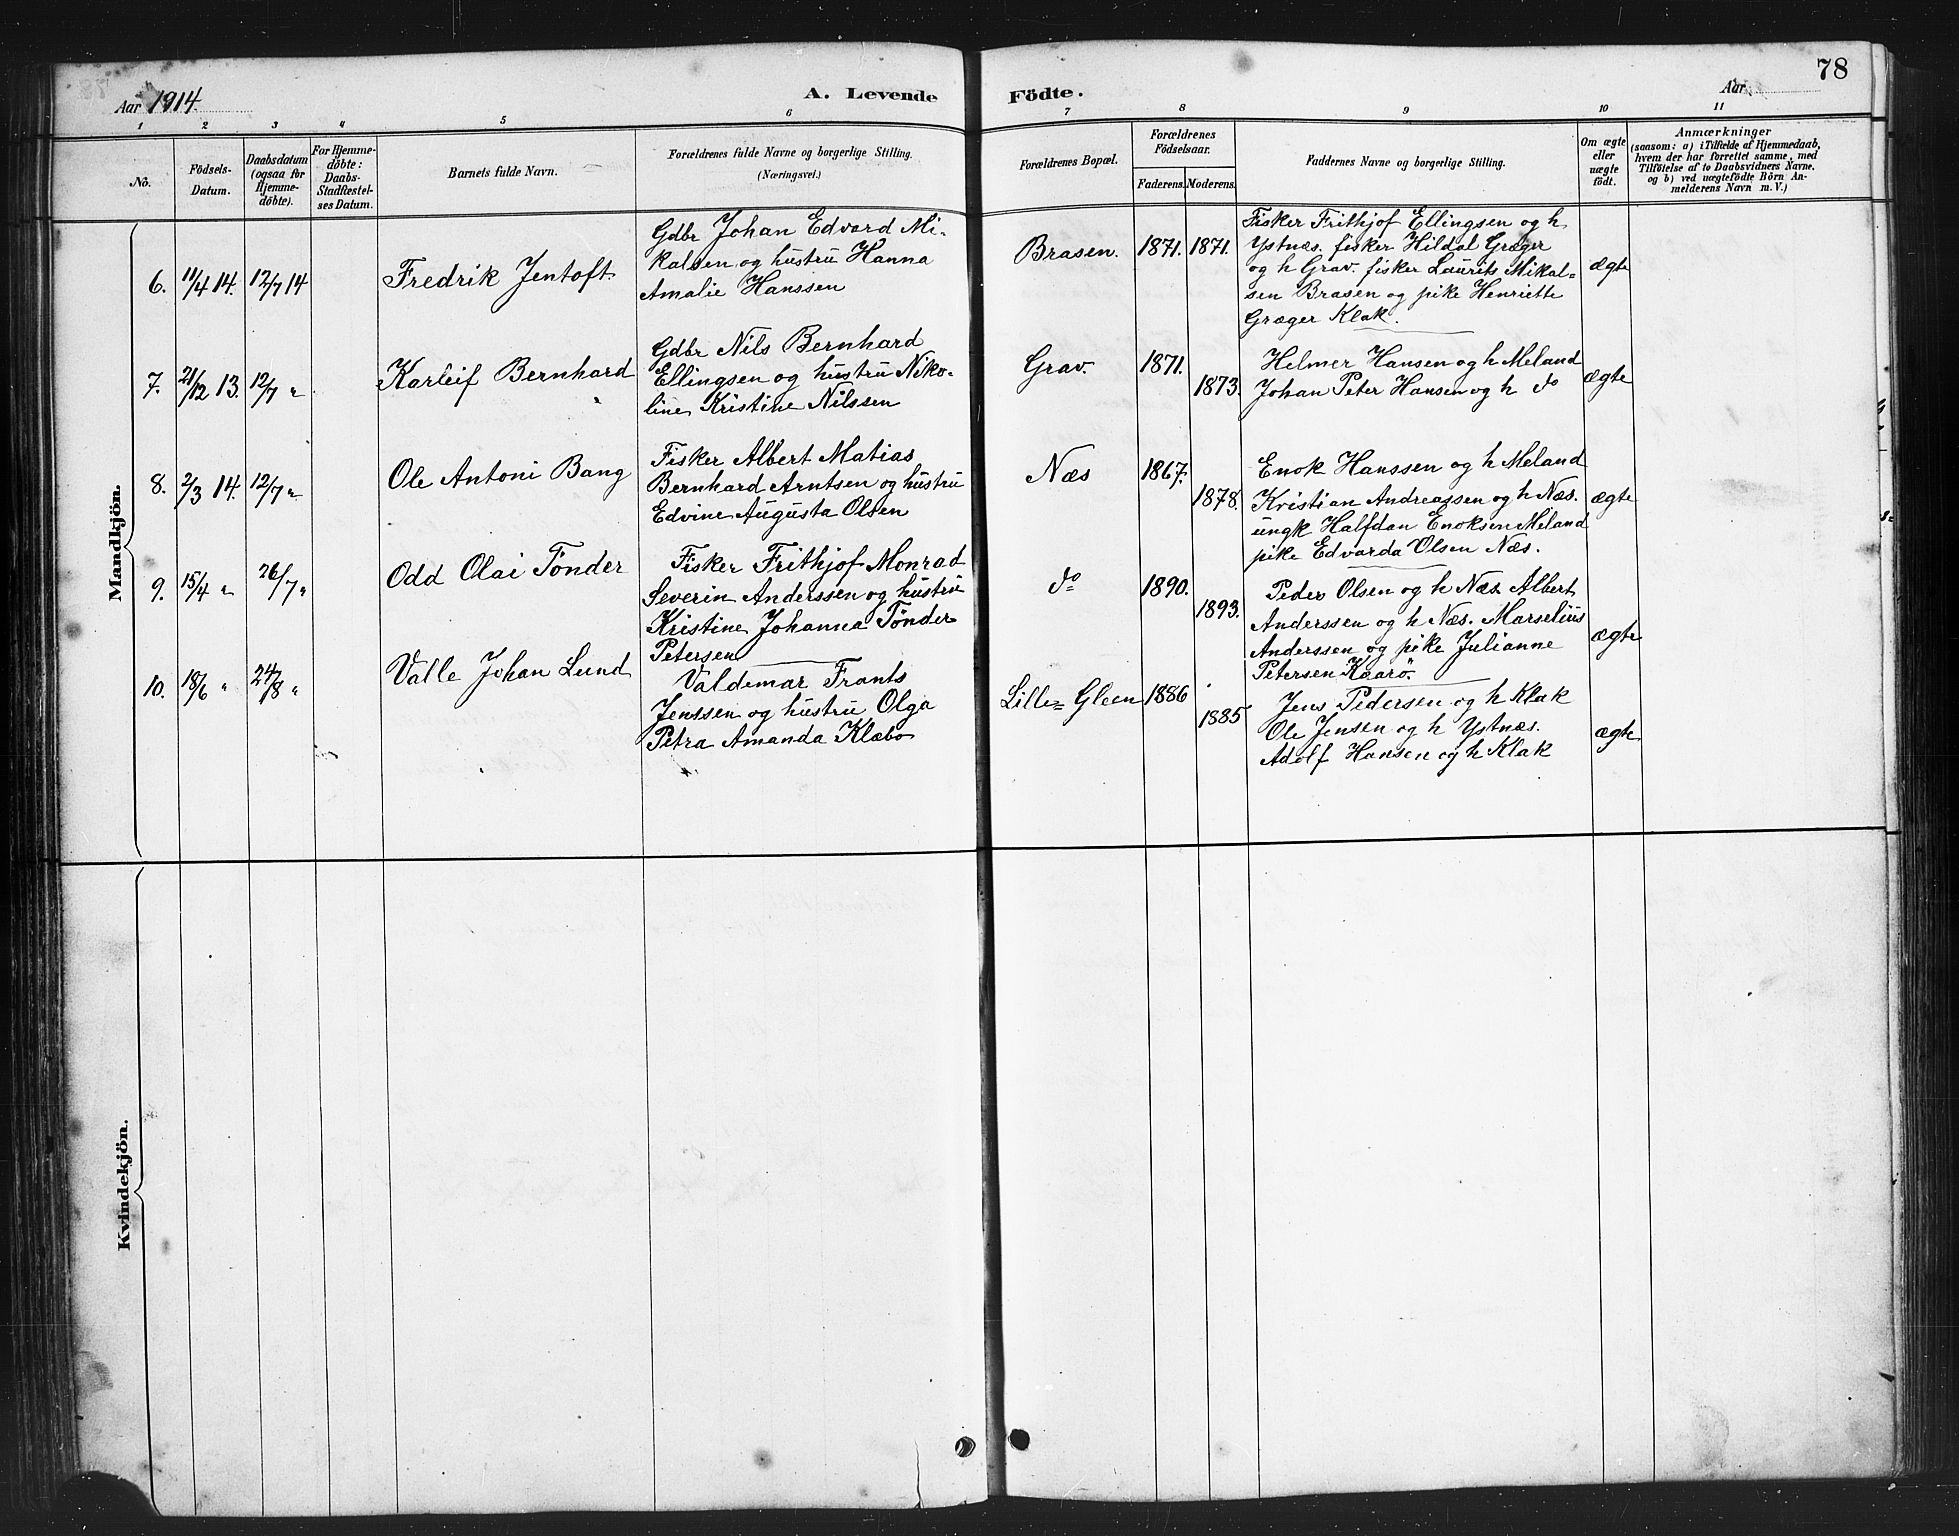 78
Aar 1914.
A. Levende Födte.
Aar
1 2 3 4 5 6 7 8 9 10 11
No.
Födsels-
Datum.
Daabsdatum
(ogsaa for
Hjemme-
döbte).
For Hjemme-
döbte:
Daabs-
Stadfæstel-
ses Datum.
Barnets fulde Navn.
Forældrenes fulde Navne og borgerlige Stilling.
(Næringsvei.)
Forældrenes Bopæl.
Forældrenes
Födselsaar.
Faderens. Moderens.
Faddernes Navne og borgerlige Stilling.
Om ægte
eller
uægte
født.
Anmærkninger
(saasom: a) i Tilfælde af Hjemmedaab,
hvem der har forrettet samme, med
Tilföielse af to Daabsvidners Navne,
og b) ved uægtefödte Börn An-
melderens Navn m. V.)
Mandkjön.
6. 11/4 14. 12/7 14
Fredrik Jentoft
Gdbr Johan Edvard Mi-
kalsen og hustru Hanna
Amalie Hanssen
Brasen. 1871. 1871.
Fisker Frithjof Ellingsen og h
Ystnæs. fisker Hildal Græger
og h Grav. fisker Laurits Mikal-
sen Brasen og pike Henriette
Græger Klak.
ægte
7. 21/12 13. 12/7 "
Karleif Bernhard
Gdbr Nils Bernhard
Ellingsen og hustru Niko-
line Kristine Nilssen
Grav. 1871. 1873.
Helmer Hansen og h Meland
Johan Peter Hansen og h do
ægte
8. 2/3 14. 12/7 "
Ole Antoni Bang
Fisker Albert Matias
Bernhard Arntsen og hustru
Edvine Augusta Olsen
Næs 1867. 1878.
Enok Hanssen og h Meland
Kristian Andreassen og h Næs.
ungk Halfdan Enoksen Meland
pike Edvarda Olsen Næs.
ægte
9. 15/4 " 26/7 "
Odd Olai Tönder
Fisker Frithjof Monrad
Severin Anderssen og hustru
Kristine Johanna Tönder
Petersen
do 1890. 1893.
Peder Olsen og h Næs Albert
Anderssen og h Næs. Marselius
Anderssen og pike Julianne
Petersen Kaarö.
ægte
10. 18/6 " 24/8 "
Valle Johan Lund
Valdemar Frants
Jenssen og hustru Olga
Petra Amanda Klæbo
Lille= Gleen 1886 1885
Jens Pedersen og h Klak
Ole Jensen og h Ystnæs.
Adolf Hansen og h Klak
ægte
Kvindekjön.